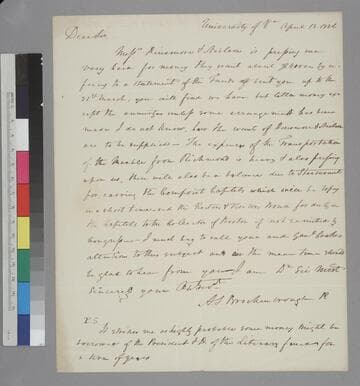 University of Va April 13. 1826
Dear Sir
Messrs Dinsmore & Neilson is pressing me
very hard for money they want about
a statement of the Funds sent you up to the
31st March, you will find we have but little money ex
cept the annuities unless some arrangement has been
made I do not know, how the wants of Dinsmore & Neilson
are to be supplied — The expences of the Transportation
of the Marble from Richmond is heavy & also pressing
upon us, there will also be a balance due to
for carrying the Composite Capitals which will be
in a short time and the Bond for duty on
the Capitals to the Collector of Boston if not remitted by
Congress — I must beg to call your and Genl Cockes
attention to this subject and in the mean time should
be glad to hear from you I am Dr Sir Most
Sincerely your Obt Svt
A S Brockenbrough P
P.S.
It strikes me as highly probable some money might be
borrowed of the President & D of the Literary fund for
a term of years